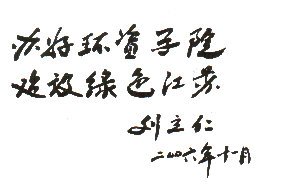 办好环资学院
建设绿色江苏
刘立仁
二〇〇六年十一月